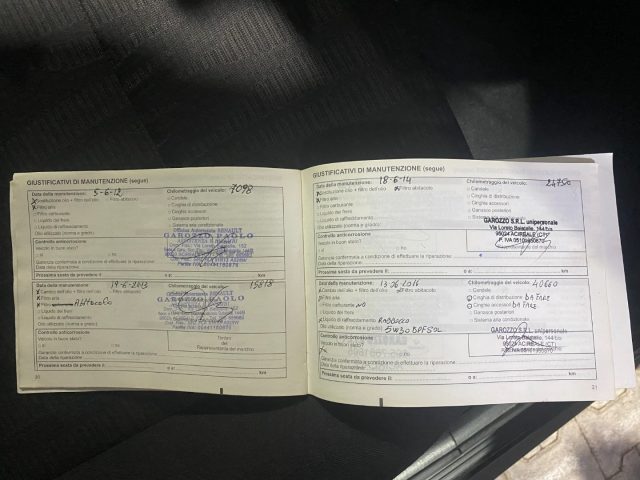 GIUSTIFICATIVI DI MANUTENZIONE (segue)
Data della manutenzione: 5-6-12
Chilometraggio del veicolo: 7098
Sostituzione olio + filtro dell'olio
Filtro abitacolo
Filtro aria
Filtro carburante
Liquido dei freni
Liquido di raffreddamento
Olio utilizzato (norma e grado):
Candele
Cinghia di distribuzione
Cinghie accessori
Ganasce posteriori
GAROZZO PAOLO
Controllo anticorrosione:
Veicolo in buon stato?
Garanzia confermata a condizione di effettuare la riparazione:
Data della riparazione:
Prossima sosta da prevedere il: o a: km
Data della manutenzione: 2013
Chilometraggio del veicolo: 15818
Cambio dell'olio + filtro dell'olio
Filtro aria
Liquido dei freni
Liquido di raffreddamento
Olio utilizzato (norma e grado):
GAROZZO PAOLO
Controllo anticorrosione
Veicolo in buon stato?
Timbro
del
Rappresentante del marchio
Garanzia confermata a condizione di effettuare la riparazione:
Data della riparazione:
Prossima sosta da prevedere il: o a: km
20
GIUSTIFICATIVI DI MANUTENZIONE (segue)
Data della manutenzione: 18-6-14
Chilometraggio del veicolo: 24750
Sostituzione olio + filtro dell'olio
Filtro abitacolo
Filtro aria
Filtro carburante
Liquido dei freni
Liquido di raffreddamento
Olio utilizzato (norma e grado):
Candele
Cinghia di distribuzione
Cinghie accessori
Ganasce posteriori
GAROZZO S.R.L. unipersonale
Via Lorelo Balatelle, 144 bis
95024 ACIREALE (CT)
Controllo anticorrosione:
Veicolo in buon stato?
Garanzia confermata a condizione di effettuare la riparazione:
Data della riparazione:
Prossima sosta da prevedere il: o a: km
Data della manutenzione: 13-06-2016
Chilometraggio del veicolo: 40660
Cambio dell'olio + filtro dell'olio
Filtro abitacolo
Filtro aria
Filtro carburante NO
Liquido dei freni
Liquido di raffreddamento RABBOCCO
Olio utilizzato (norma e grado) 5W30 DPF
Candele
Cinghia di distribuzione DA FARE
Cinghie accessori DA FARE
Ganasce posteriori
Sistema aria condizionata
GAROZZO S.R.L. unipersonale
ACIREALE (CT)
Controllo anticorrosione
Veicolo in buon stato?
Garanzia confermata a condizione di effettuare la riparazione:
Data della riparazione:
Prossima sosta da prevedere il: o a: km
21